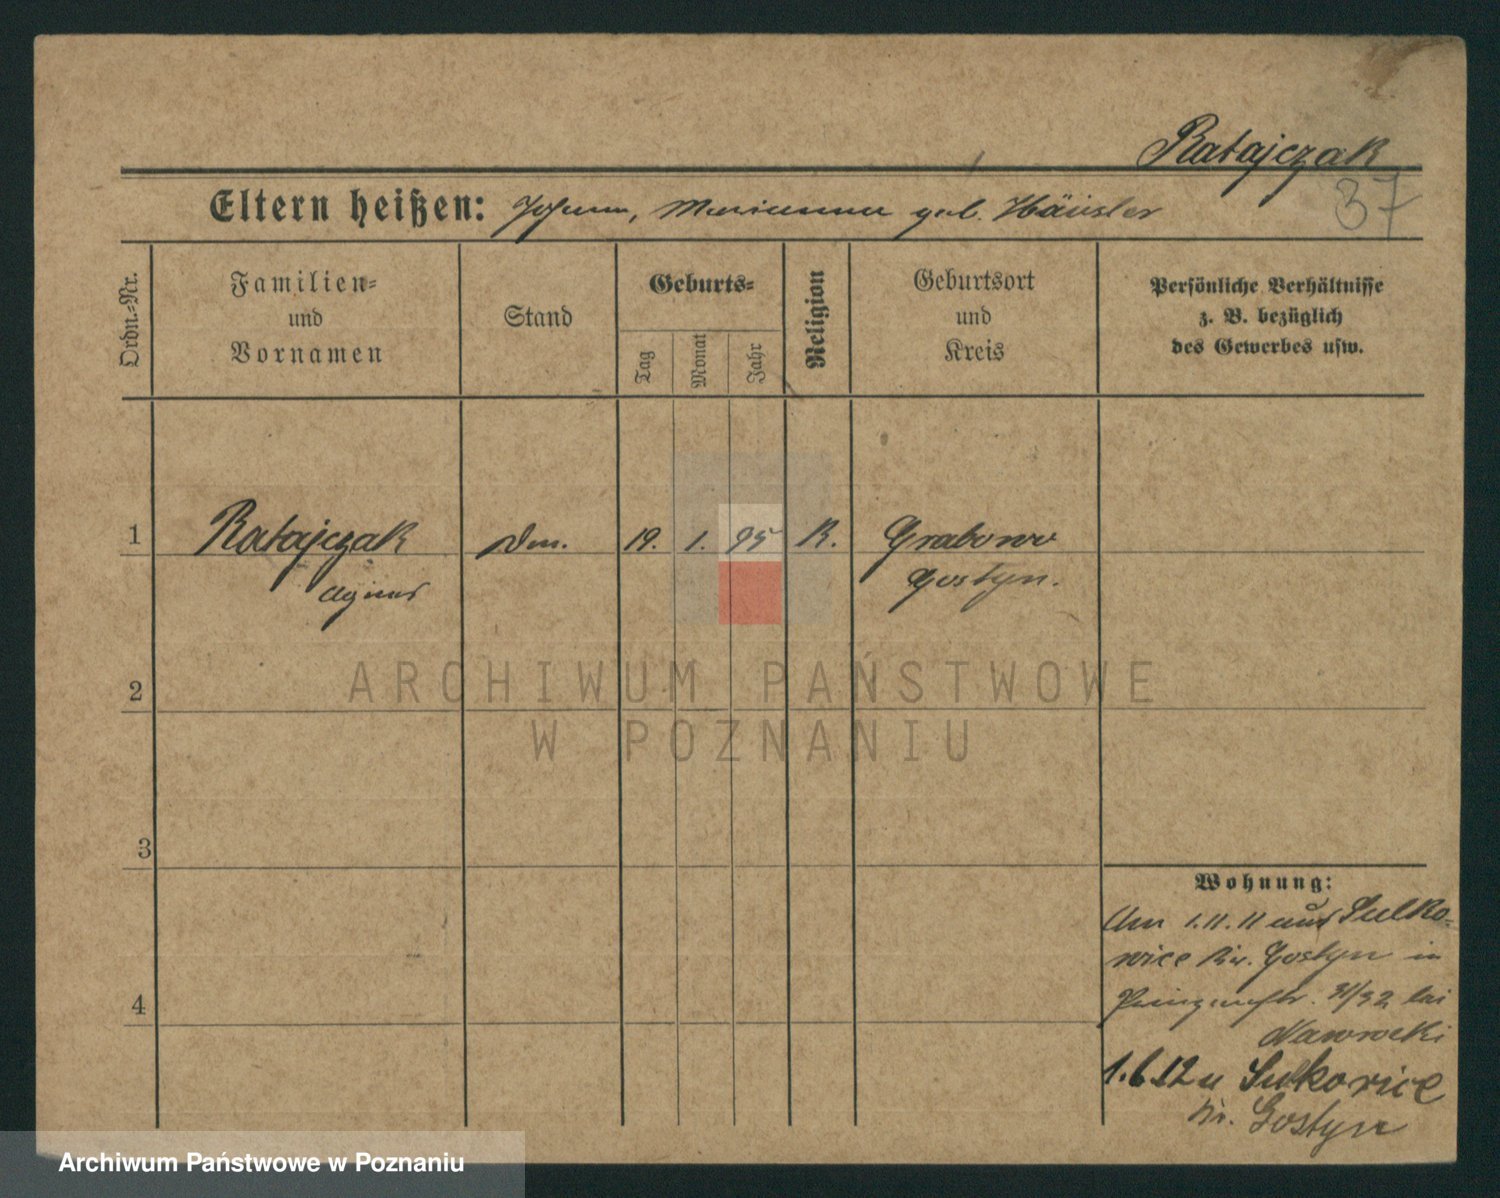 Ratajczak
37
Eltern heißen: Johann, Marianna geb. Häusler
Ordn.-Nr.
Familien-
und
Vornamen
Stand
Geburts-
Tag
Monat
Jahr
Religion
Geburtsort
und
Kreis
Persönliche Verhältnisse
z. B. bezüglich
des Gewerbes usw.
1 Ratajczak 19. 1. 95 K. Grabowo
Agnes Gostyn.
ARCHIWUM PAŃSTWOWE
2
W POZNANIU
3
Wohnung:
Am 1.11.11 aus Sulko-
wice Kr. Gostyn in
4 Prinzenstr. 31/32 bei
Nawrocki
1.6.12 n Sulkowice
Kr. Gostyn
Archiwum Państwowe w Poznaniu